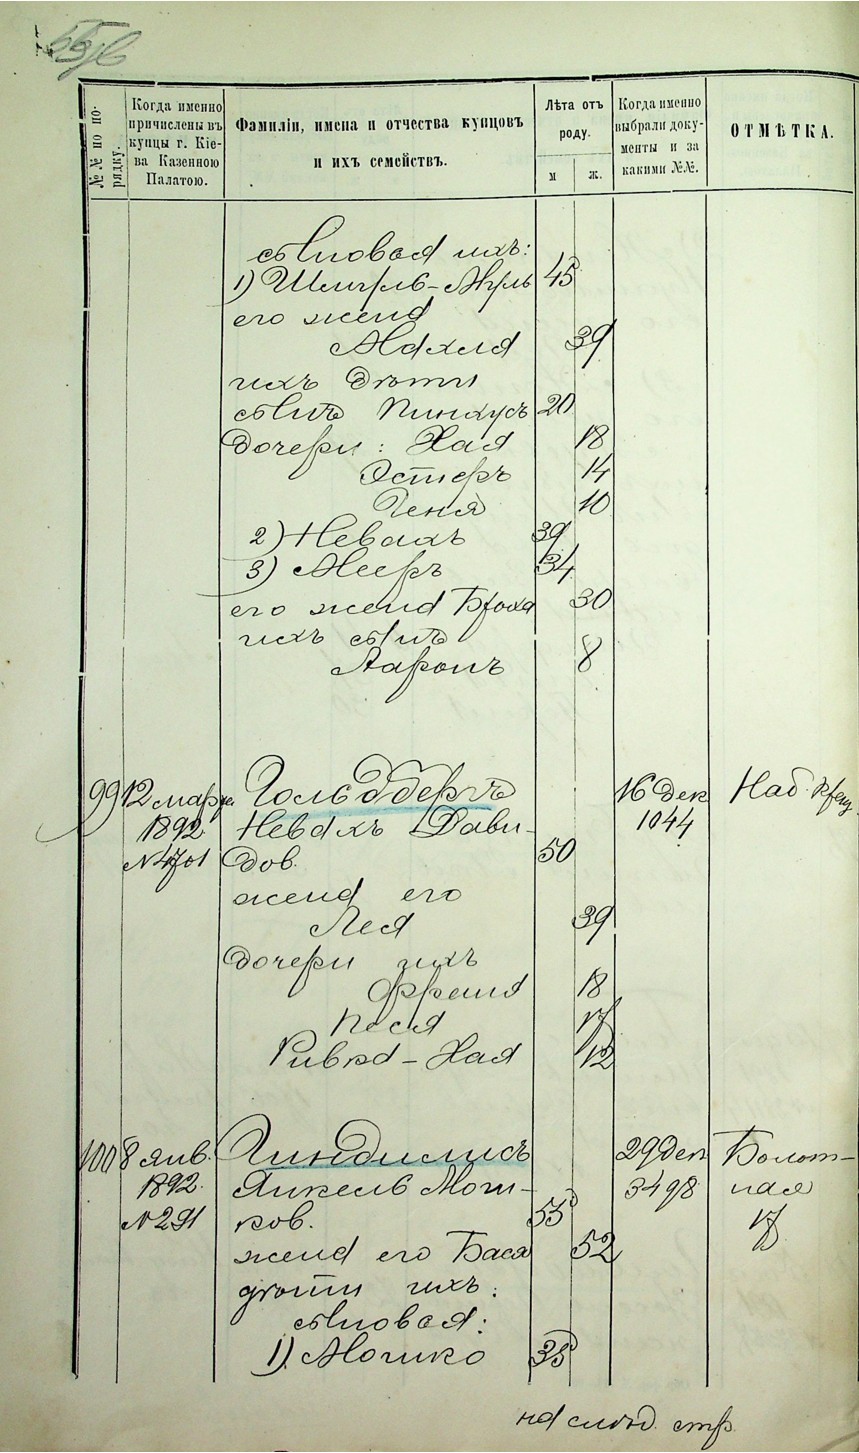 №№ по по-
рядку.
Когда именно
причислены въ
купцы г. Кіе-
ва Казенною
Палатою.
Фамиліи, имена и отчества купцовъ
и ихъ семействъ.
Лѣта отъ
роду.
м ж.
Когда именно
выбрали доку-
менты и за
какими №№.
ОТМѢТКА.
сыновья ихъ:
1) Шмуль-Нухъ 45
его жена
Махля 39
ихъ дѣти
сынъ Пинхусъ 20
Дочери: Хая 18
Эстеръ 14
Геня 10
2) Невахъ 39
3) Мееръ 34
его жена Броха 30
ихъ сынъ
Ааронъ 8
99 12 марта Гольдбергъ 16 Дек Наб. Крещ.
1892 Невахъ Дави- 1044
№4701 дов. 50
жена его
Лея 39
дочери ихъ
Фрейга 18
Песя 17
Ривка-Хая 12
100 8 янв. Гиндилисъ 29 Дек Болот-
1892 Янкель Мош- 3498 ная
№291 ков. 55 17
жена его Бася 52
дѣти ихъ:
сыновья:
1) Мошко 35
на слѣд. стр.